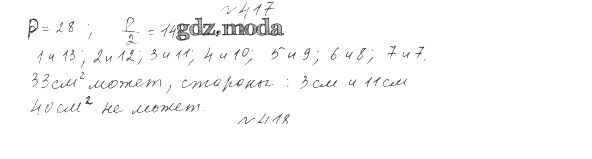 №417
P = 28 ; P/2 = 14 gdz.moda
1 и 13; 2 и 12; 3 и 11; 4 и 10; 5 и 9; 6 и 8; 7 и 7.
33 см² может, стороны : 3 см и 11 см
40 см² не может.
№418